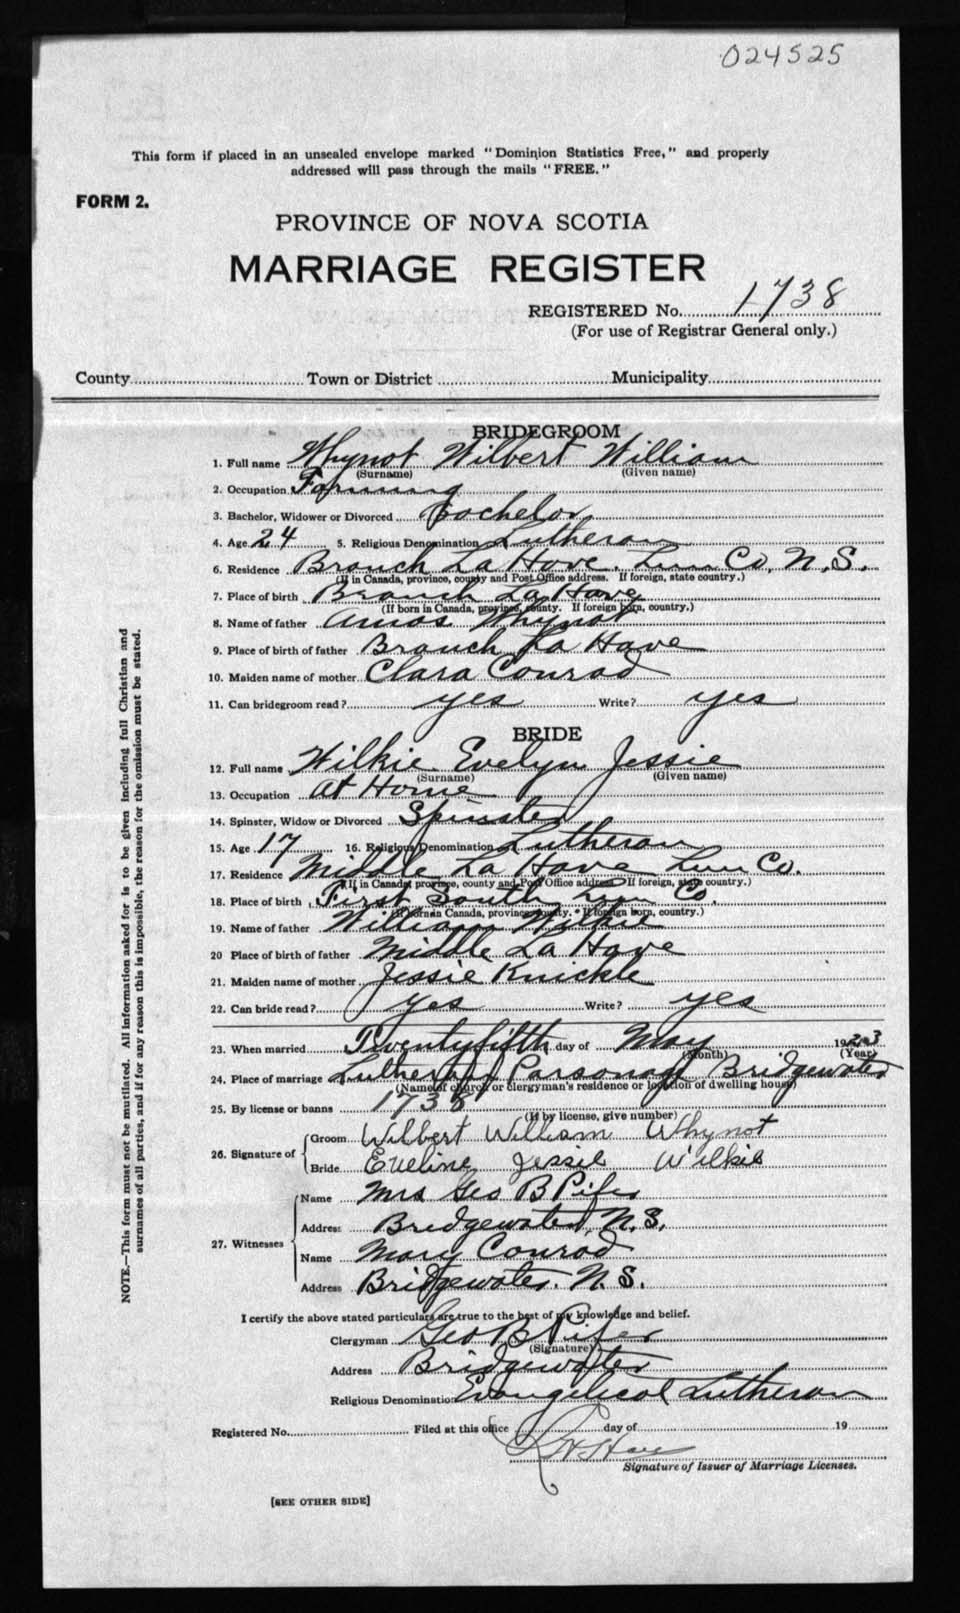 024525
This form if placed in an unsealed envelope marked "Dominion Statistics Free," and properly
addressed will pass through the mails "FREE."
FORM 2.
PROVINCE OF NOVA SCOTIA
MARRIAGE REGISTER
REGISTERED No. 1738
(For use of Registrar General only.)
County Town or District Municipality
BRIDEGROOM
1. Full name Whynot Wilbert William
(Surname) (Given name)
2. Occupation Farming
3. Bachelor, Widower or Divorced Bachelor
4. Age 24 5. Religious Denomination Lutheran
6. Residence Branch La Have, Lun Co, N.S.
(If in Canada, province, county and Post Office address. If foreign, state country.)
7. Place of birth Branch La Have
(If born in Canada, province, county. If foreign born, country.)
8. Name of father Amos Whynot
9. Place of birth of father Branch La Have
10. Maiden name of mother Clara Conrad
11. Can bridegroom read? yes Write? yes
BRIDE
12. Full name Wilkie Evelyn Jessie
(Surname) (Given name)
13. Occupation At Home
14. Spinster, Widow or Divorced Spinster
15. Age 17 16. Religious Denomination Lutheran
17. Residence Middle La Have Lun Co.
(If in Canada, province, county and Post Office address. If foreign, state country.)
18. Place of birth First South Lun Co.
(If born in Canada, province, county. If foreign born, country.)
19. Name of father William Wilkie
20 Place of birth of father Middle La Have
21. Maiden name of mother Jessie Knickle
22. Can bride read? yes Write? yes
23. When married Twentyfifth day of May 1923
(Month) (Year)
24. Place of marriage Lutheran Parsonage Bridgewater
(Name of church or clergyman's residence or location of dwelling house)
25. By license or banns 1738
(If by license, give number)
26. Signature of Groom Wilbert William Whynot
Bride Eveline Jessie Wilkie
27. Witnesses Name Mrs Geo B Pifer
Address Bridgewater, N.S.
Name Mary Conrad
Address Bridgewater. N.S.
I certify the above stated particulars are true to the best of my knowledge and belief.
Clergyman Geo B Pifer
(Signature)
Address Bridgewater
Religious Denomination Evangelical Lutheran
Registered No. Filed at this office day of 19
Signature of Issuer of Marriage Licenses.
[SEE OTHER SIDE]
NOTE.—This form must not be mutilated. All information asked for is to be given including full Christian and
surnames of all parties, and if for any reason this is impossible, the reason for the omission must be stated.